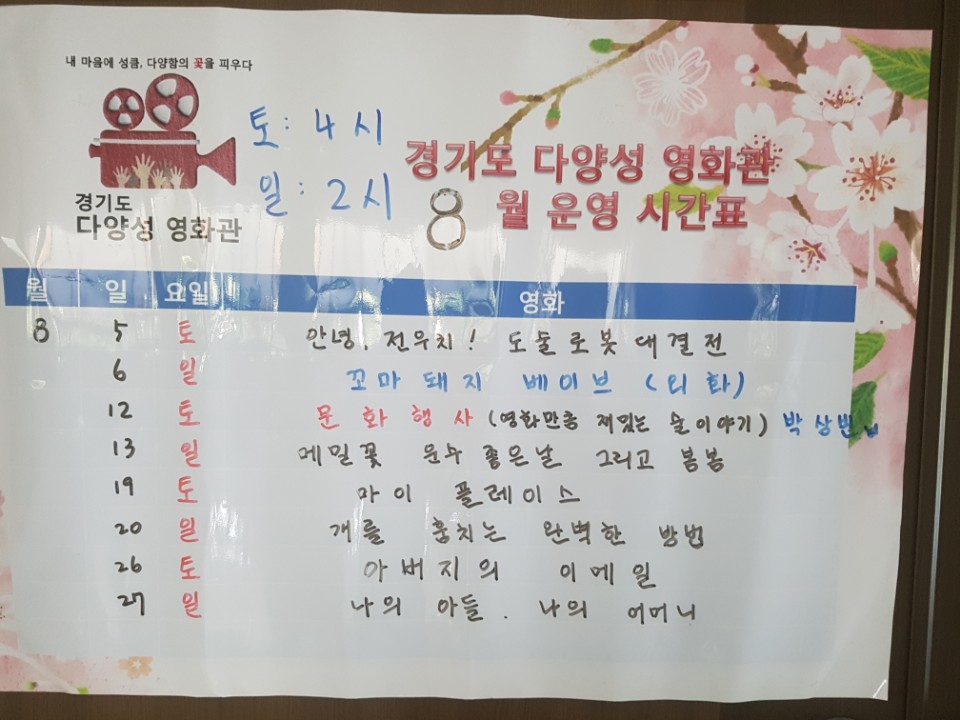 내 마음에 성큼, 다양함의 꽃을 피우다
경기도
다양성 영화관
토: 4시
일: 2시
경기도 다양성 영화관
8월 운영 시간표
월 일 요일 영화
8 5 토 안녕, 전우치! 도술로봇대결전
6 일 꼬마돼지 베이브 (외화)
12 토 문화행사 (영화만큼 재밌는 술이야기) 박상빈님
13 일 메밀꽃 운수 좋은날 그리고 봄봄
19 토 마이 플레이스
20 일 개를 훔치는 완벽한 방법
26 토 아버지의 이메일
27 일 나의 아들. 나의 어머니